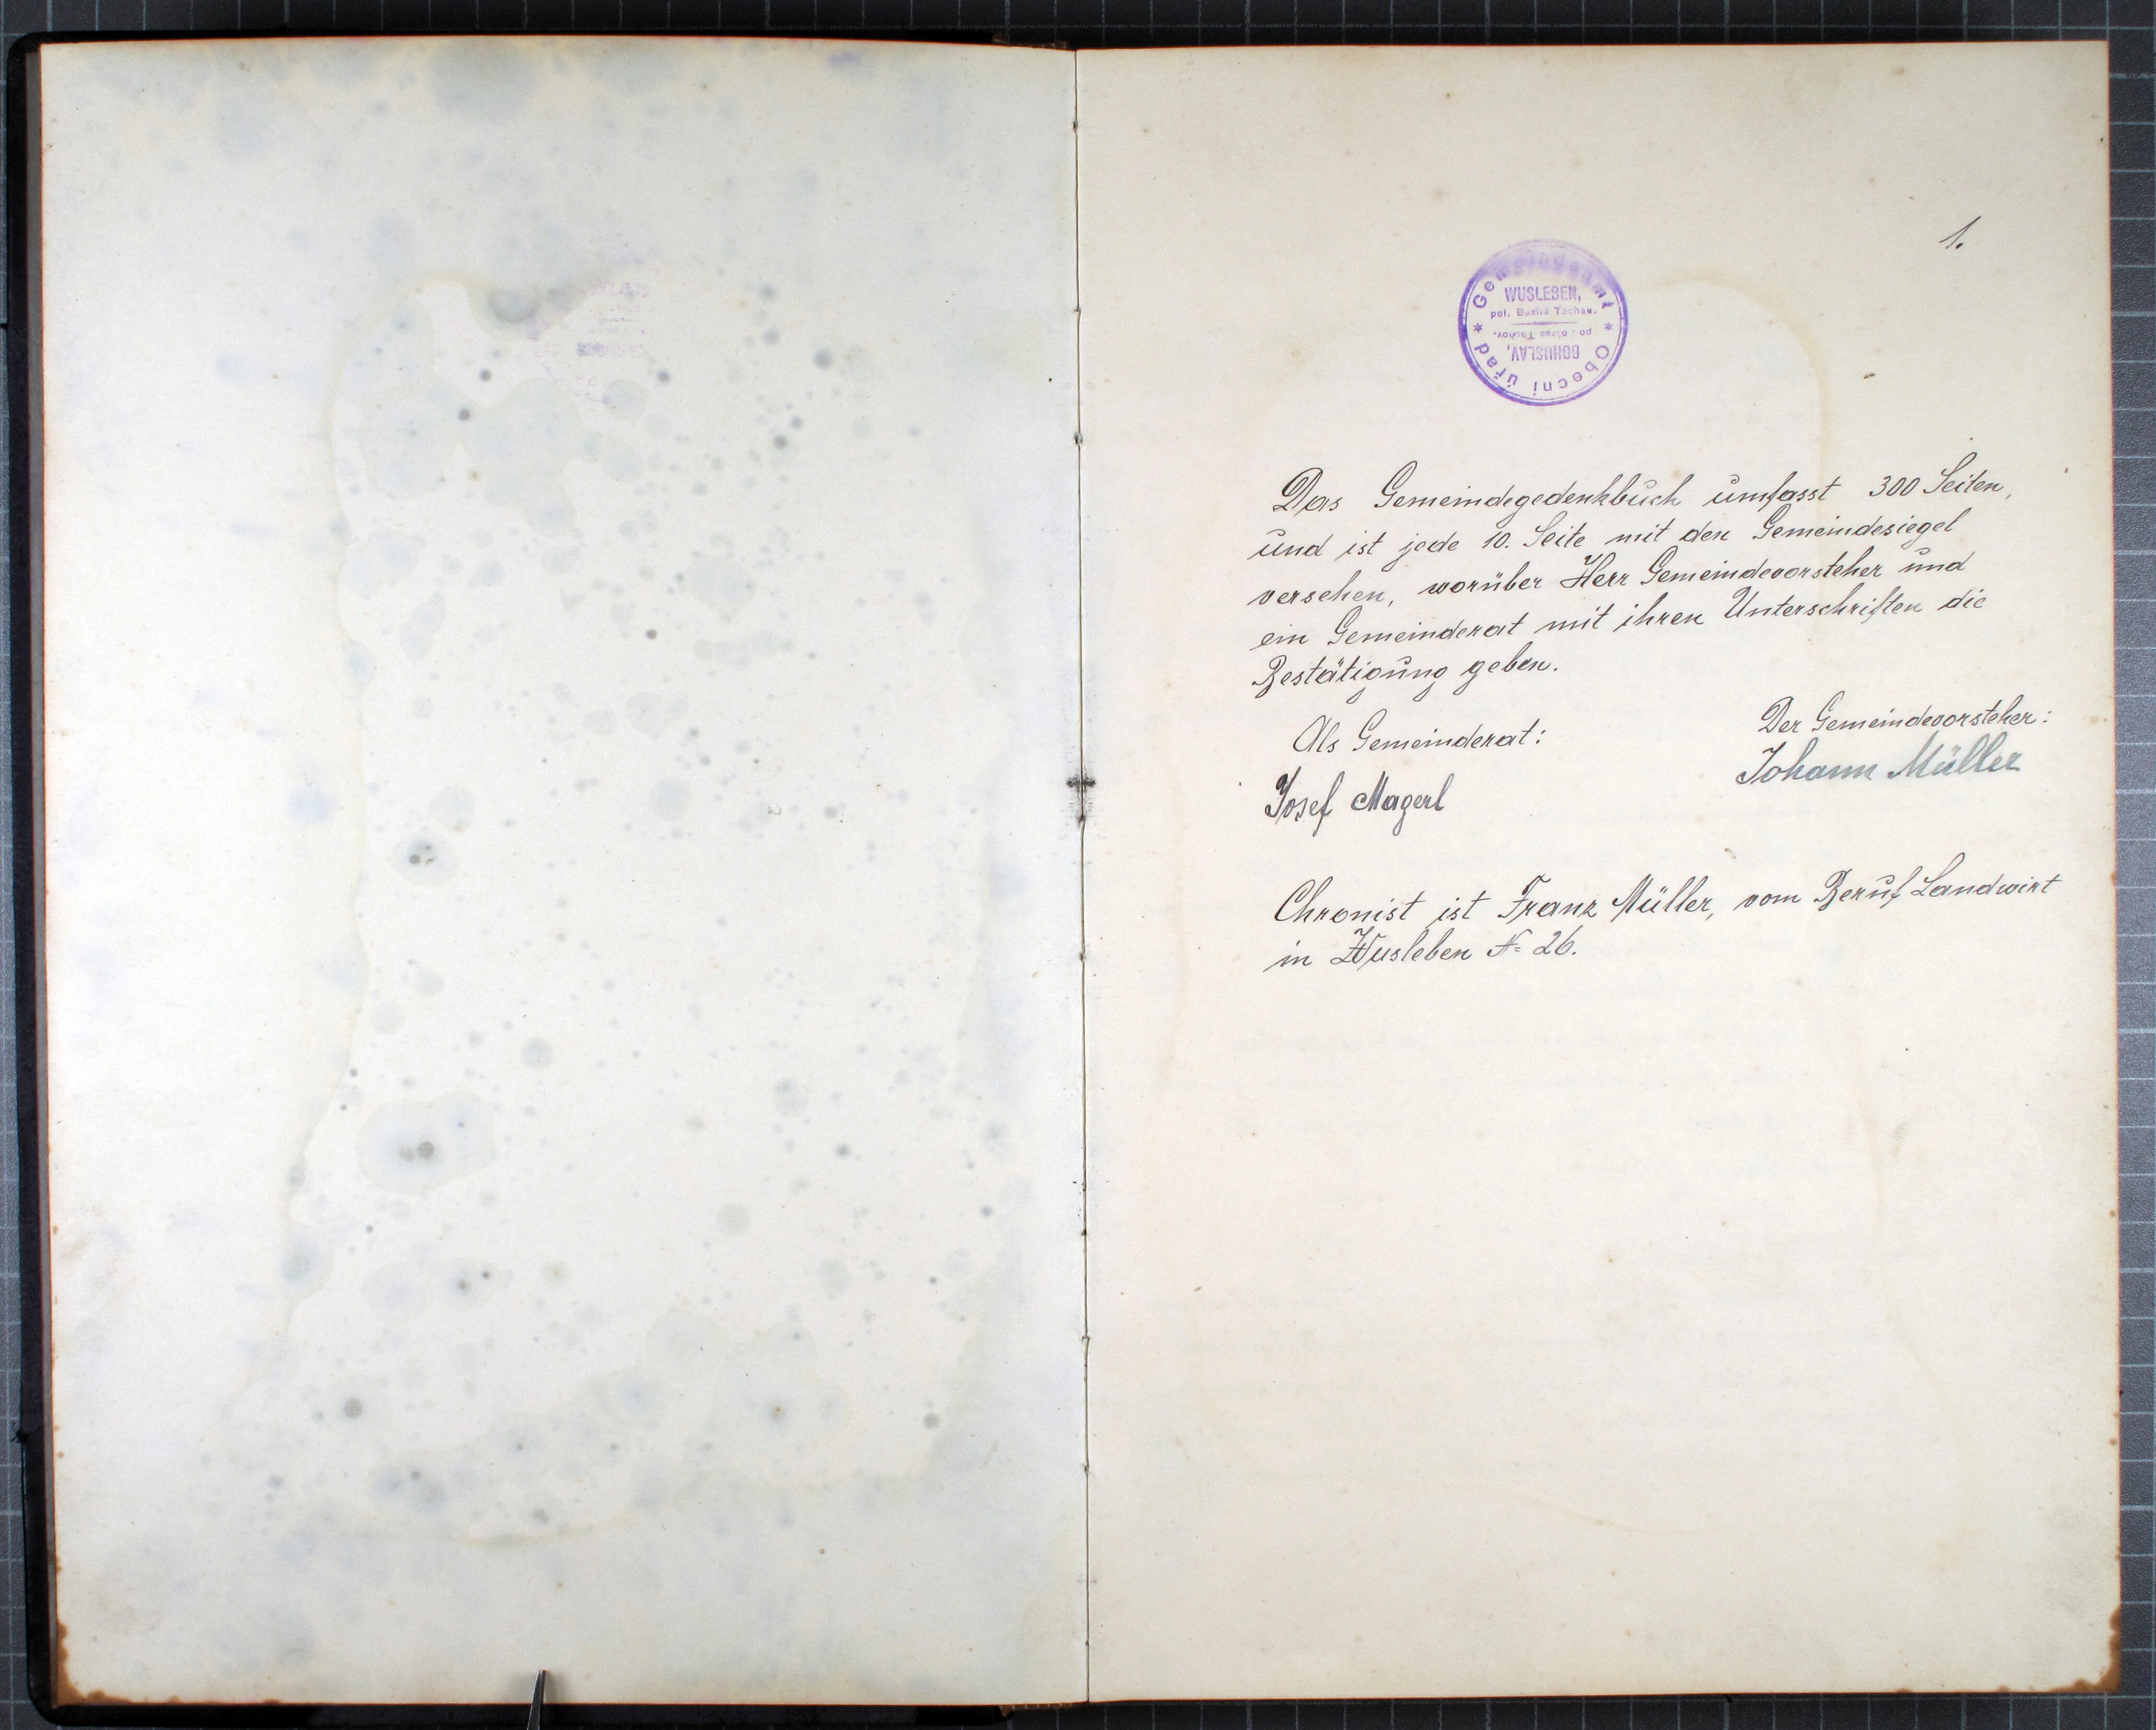 1.
Gemeindeamt
WUSLEBEN,
pol. Bezirk Tachau.
po. okres Tachov,
BOHUSLAV,
Obecní úřad
Das Gemeindegedenkbuch umfasst 300 Seiten,
und ist jede 10. Seite mit den Gemeindesiegel
versehen, worüber Herr Gemeindevorsteher und
ein Gemeinderat mit ihren Unterschriften die
Bestätigung geben.
Als Gemeinderat:
Der Gemeindevorsteher:
Josef Magerl
Johann Müller
Chronist ist Franz Müller, vom Beruf Landwirt
in Wusleben N= 26.